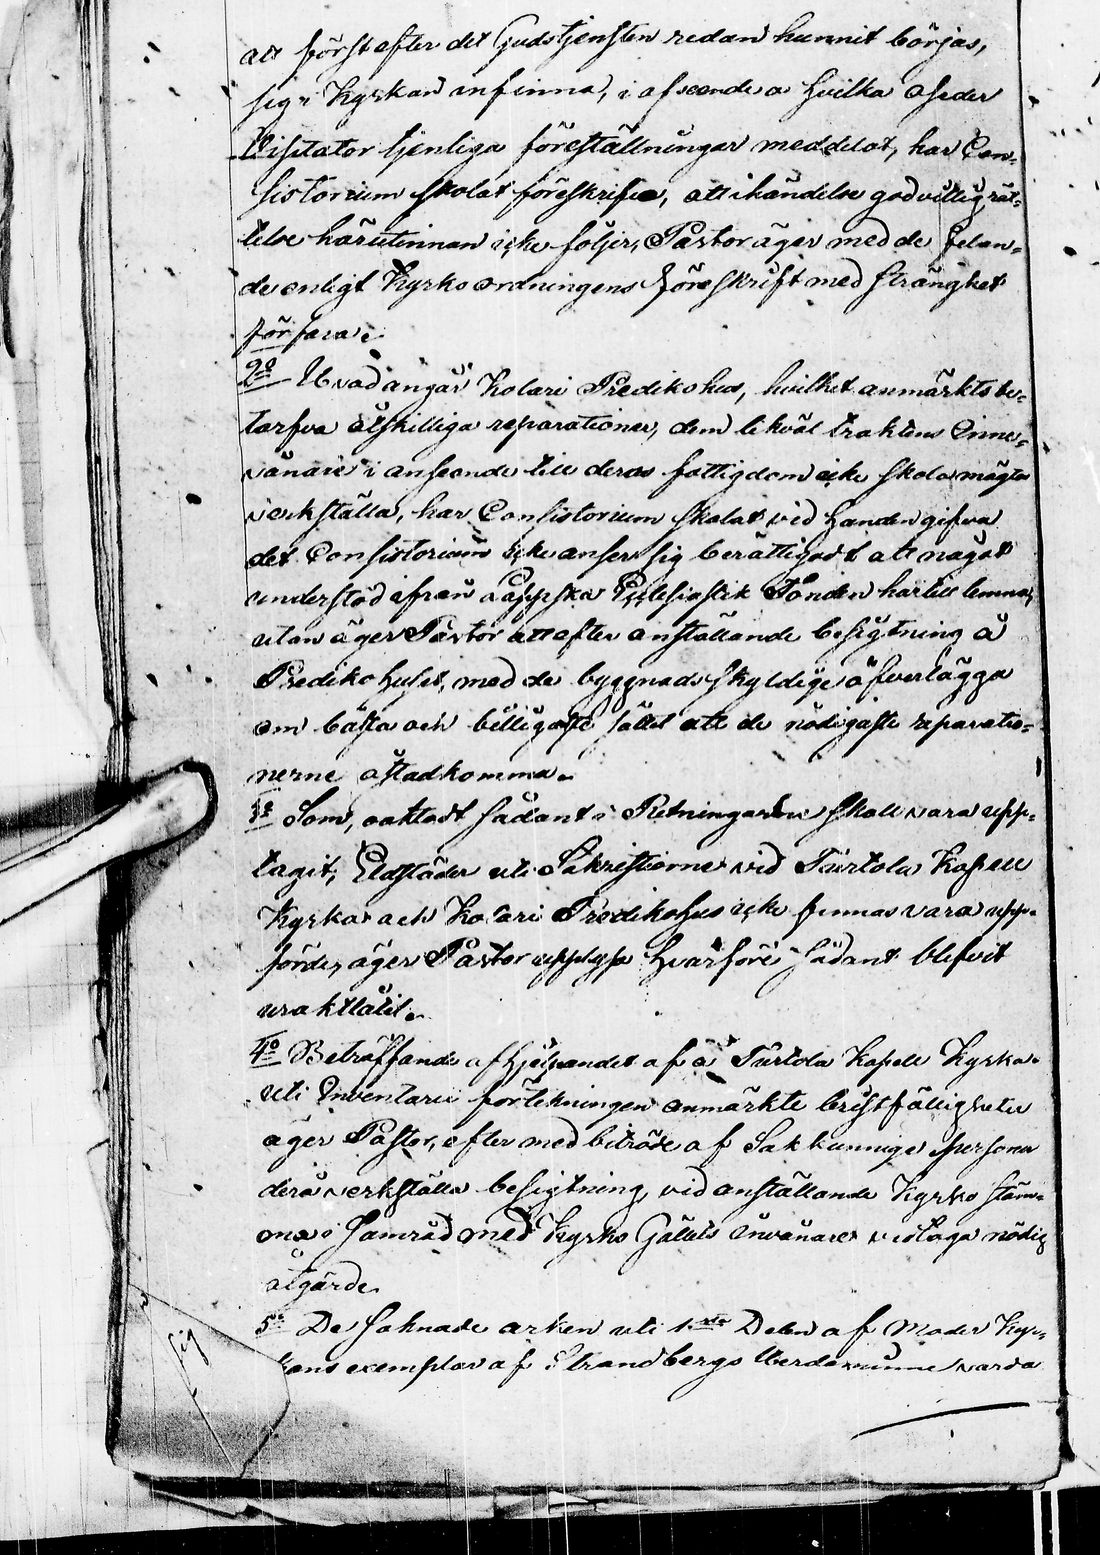 att först efter det Gudstjensten redan hunnit börjas,
sig i Kyrkan infinna, i afseende a hvilka oseder
Visitator tjenliga föreställningar meddelat, har Con-
sistorium skolat föreskrifva, att i händelse godvillig rät-
telse härutinnan icke följer, Pastor äger med de felan-
de enligt Kyrkoordningens föreskrift med stränghet
förfara.
2o Hvad angår Kolari Predikohus, hvilket anmärkts be-
tarfva åtskilliga reparationer, dem likväl traktens Inne-
vånare i anseende till deras fattigdom icke skola mägta
verkställa, har Consistorium skolat vid handen gifva
det Consistorium icke anser sig berättigadt att något
understöd ifrån Lappska Ecclesiastik Fonden härtill lemna,
utan äger Pastor att efter anställande besigtning å
Predikohuset, med de byggnadsskyldige öfverlägga
om bästa och billigaste sättet att de nödigaste reparatio-
nerne åstadkomma.
3o Som, oaktadt sådant i Ritningarne skall vara upp-
tagit, Eldstäder uti Sakristiorne vid Turtola Kapell
Kyrka och Kolari Predikohus icke finnas vara upp-
förde, äger Pastor upplysa hvarföre sådant blifvit
uraktlåtit.
4o Beträffande afhjelpandet af å Turtola Kapell Kyrka
uti Inventarii förtekningen anmärkte bristfälligheter
äger Pastor, efter med biträde af Sakkunnige personer
derå verkställd besigtning, vid anställande Kyrkostäm-
ma i samråd med Kyrko Gällets invånare vidtaga nödig
åtgärd.
5o De saknade arken uti 1sta Delen af Moder Kyr-
kans exemplar af Strandbergs Herdaminne varda
sig